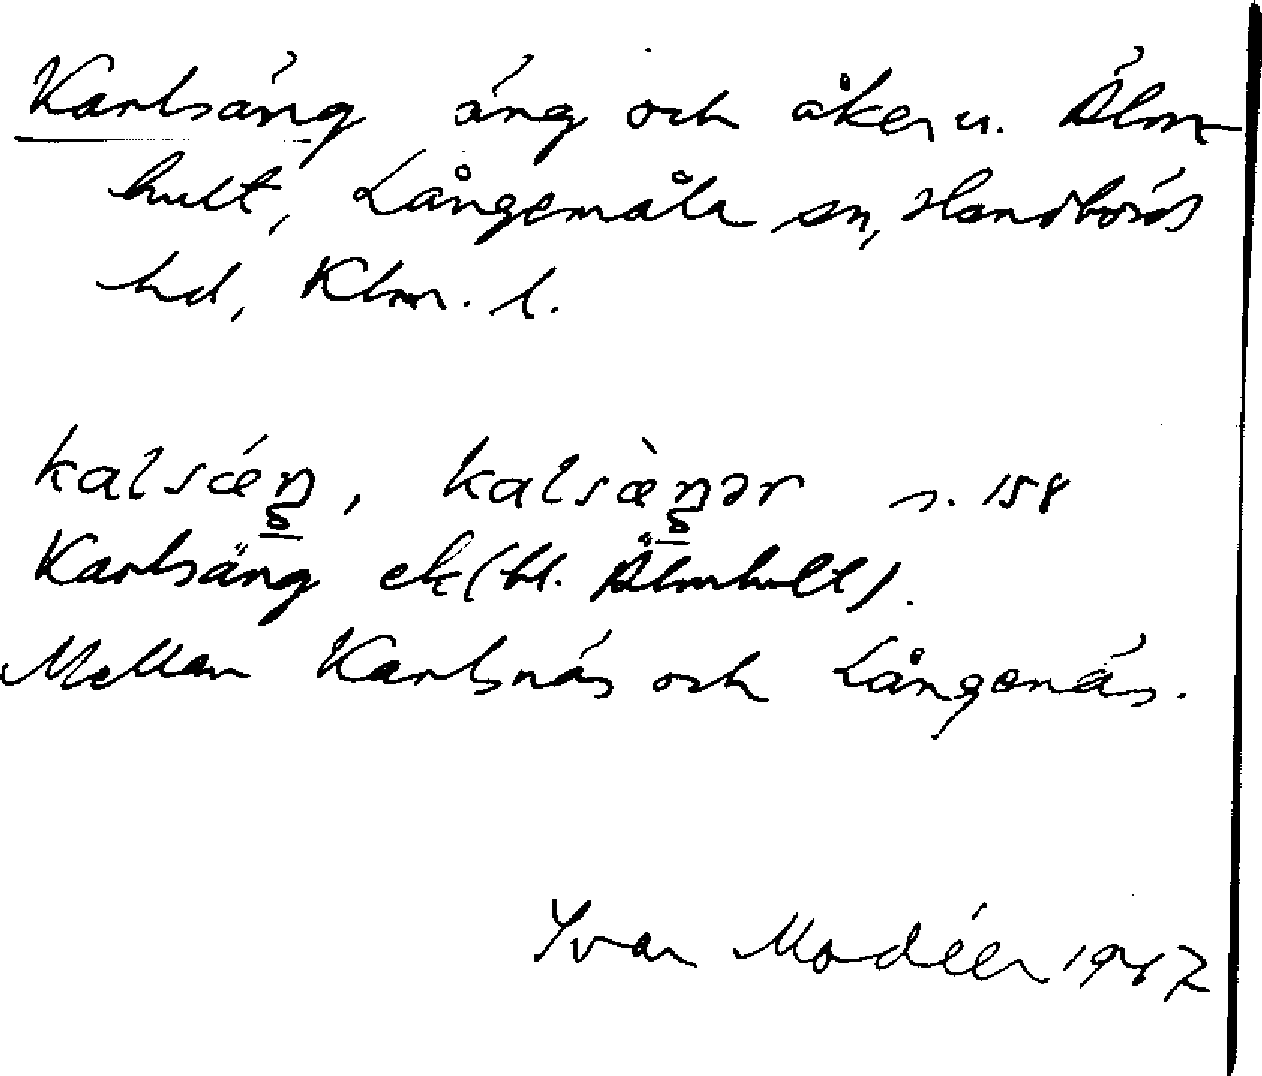 Karlsäng äng och åker u. Älm-
hult, Långemåla sn, Handbörds
hd, Klm. l.
kalsǽŋ, kalsæ̀ŋər s. 158
Karlsäng ek (bl. Älmhult).
Mellan Karlsnäs och Långenäs.
Yvar Modéer 1947